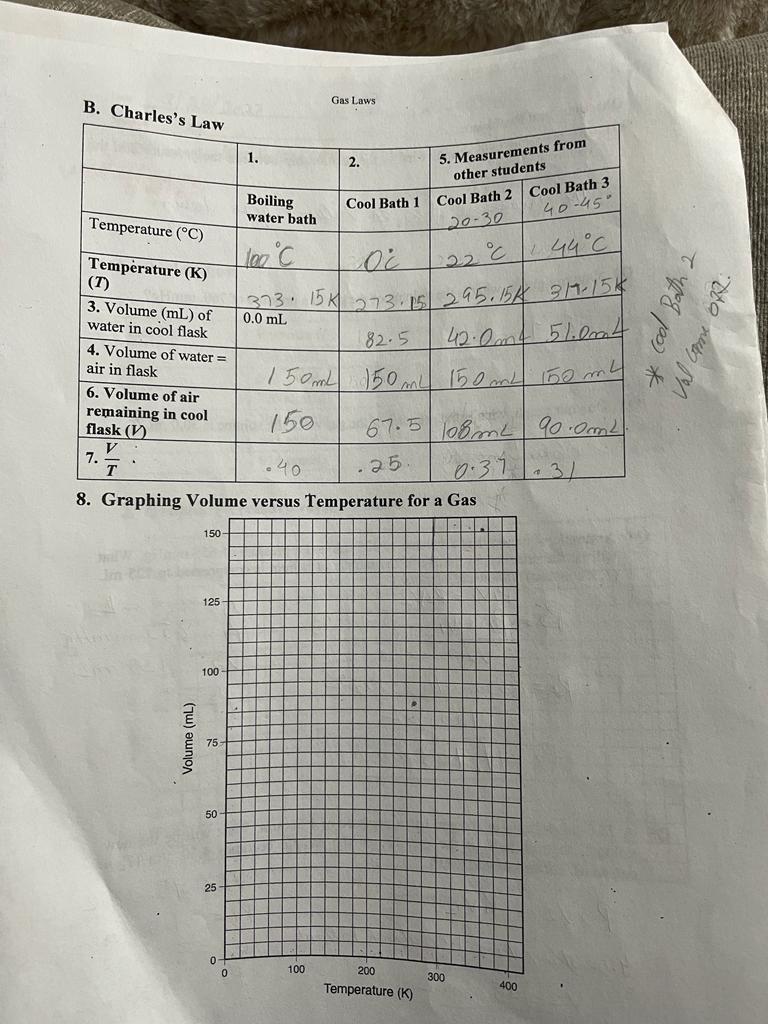 Gas Laws
B. Charles's Law
1. 2. 5. Measurements from
other students
Boiling
water bath Cool Bath 1 Cool Bath 2 Cool Bath 3
20-30 40-45°
Temperature (°C)
100°C 0c 22°C 44°C
Temperature (K)
(T)
373.15K 273.15 295.15K 317.15K
3. Volume (mL) of
water in cool flask
0.0 mL
82.5 42.0mL 51.0mL
4. Volume of water =
air in flask
150mL 150mL 150mL 150mL
6. Volume of air
remaining in cool
flask (V)
150 67.5 108mL 90.0mL
7. V
T
.40 .25 0.37 .31
* Cool Bath 2
Val came
8. Graphing Volume versus Temperature for a Gas
150
125
100
75
50
25
0
Volume (mL)
0 100 200 300 400
Temperature (K)